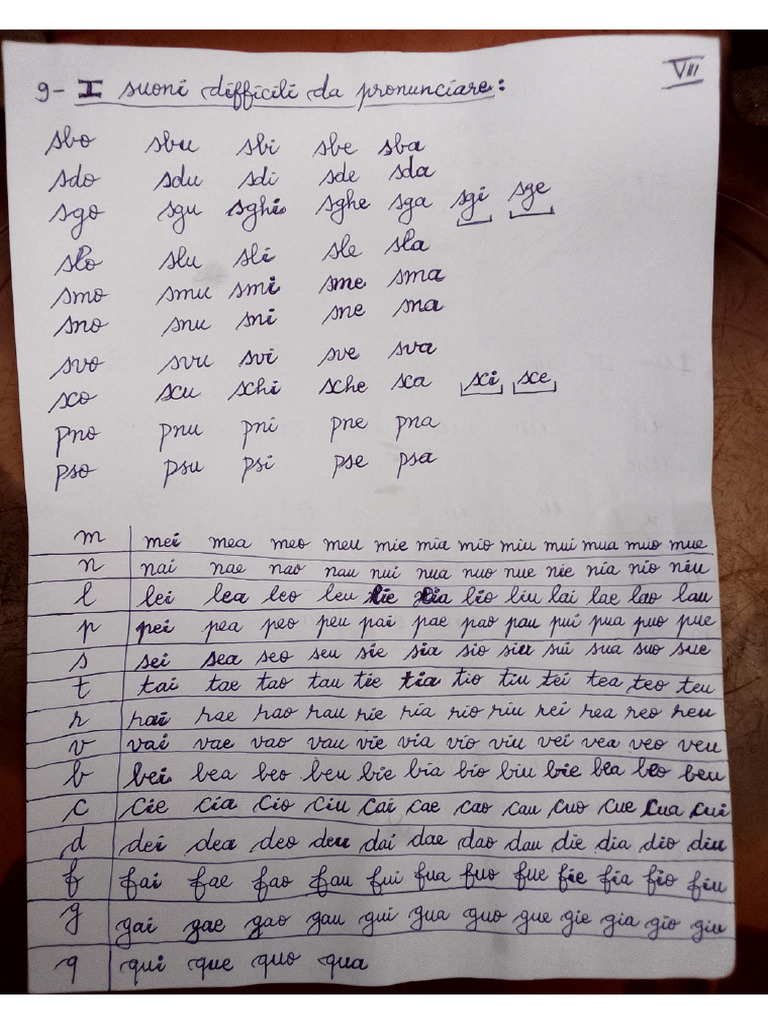 9- I suoni difficili da pronunciare: VIII
sbo sbu sbi sbe sba
sdo sdu sdi sde sda
sgo sgu sghi sghe sga sgi sge
slo slu sli sle sla
smo smu smi sme sma
sno snu sni sne sna
svo svu svi sve sva
sco scu schi sche sca sci sce
pno pnu pni pne pna
pso psu psi pse psa
m mei mea meo meu mie mia mio miu mui mua muo mue
n nai nae nao nau nui nua nuo nue nie nia nio niu
l lei lea leo leu lie lia lio liu lai lae lao lau
p pei pea peo peu pai pae pao pau pui pua puo pue
s sei sea seo seu sie sia sio siu sui sua suo sue
t tai tae tao tau tie tia tio tiu tei tea teo teu
r rai rae rao rau rie ria rio riu rei rea reo reu
v vai vae vao vau vie via vio viu vei vea veo veu
b bei bea beo beu bie bia bio biu bie bea beo beu
c cie cia cio ciu cai cae cao cau cuo cue cua cui
d dei dea deo deu dai dae dao dau die dia dio diu
f fai fae fao fau fui fua fuo fue fie fia fio fiu
g gai gae gao gau gui gua guo gue gie gia gio giu
q qui que quo qua